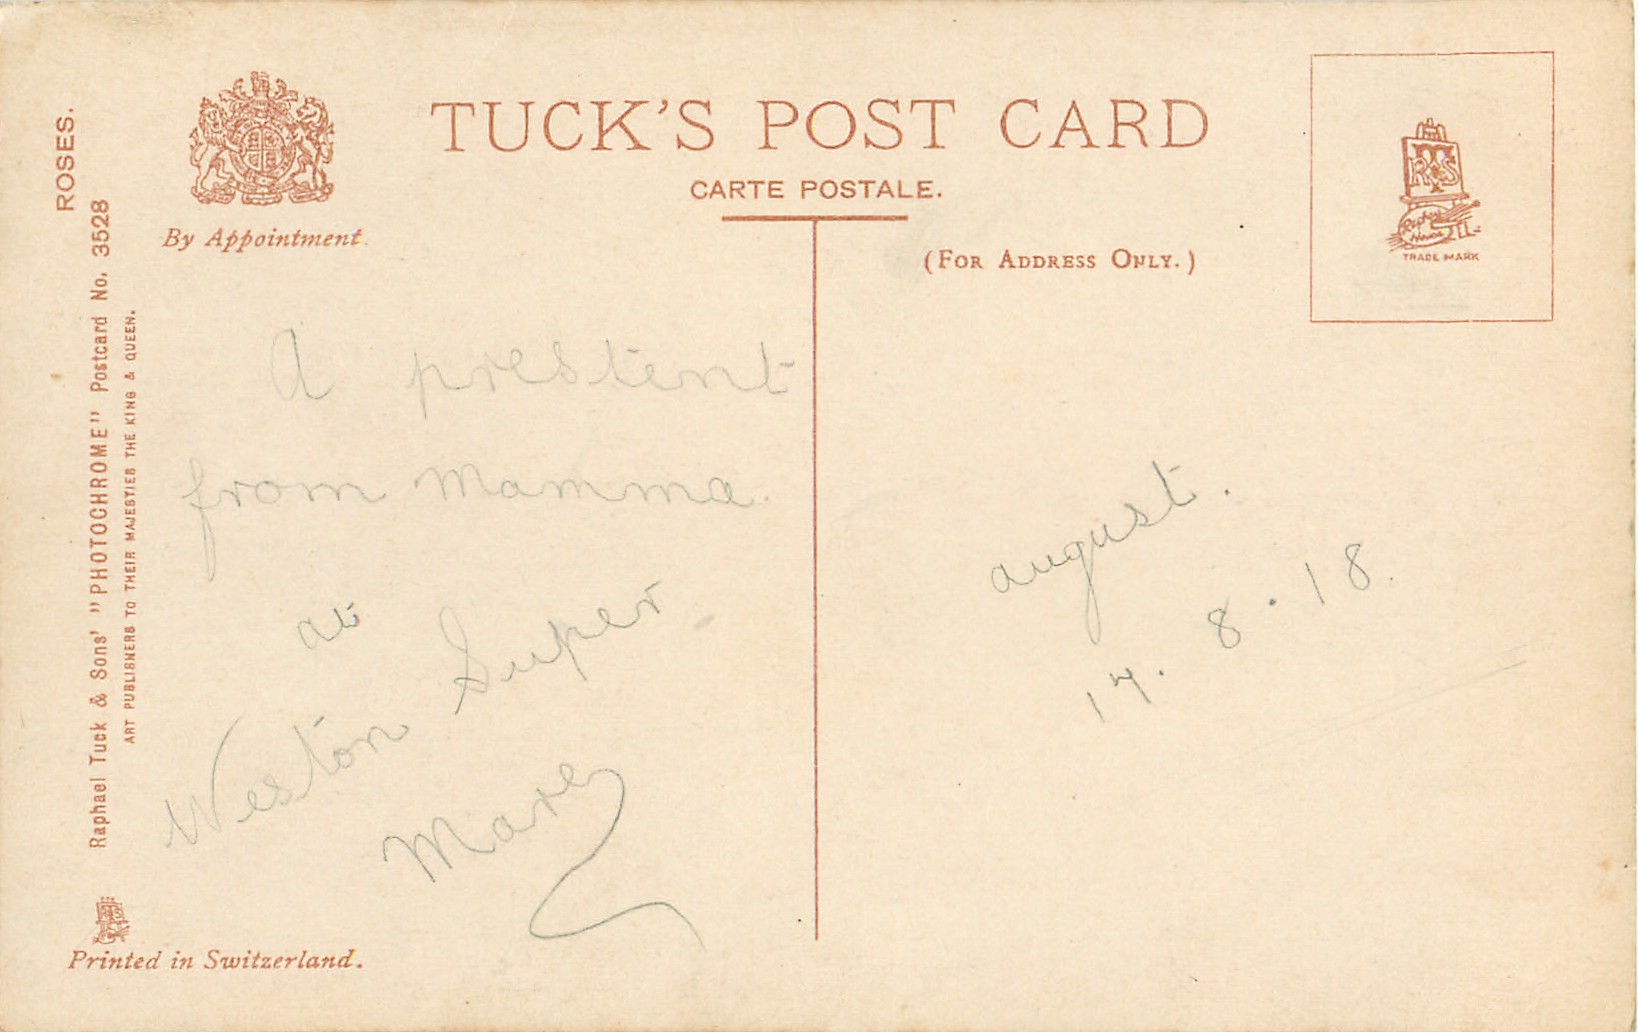 ROSES.
Raphael Tuck & Sons' "PHOTOCHROME" Postcard No. 3528
ART PUBLISHERS TO THEIR MAJESTIES THE KING & QUEEN.
By Appointment
TUCK'S POST CARD
CARTE POSTALE.
(FOR ADDRESS ONLY.)
R T & S
Raphael House
TRADE MARK
A prestent
from Mamma.
at
Weston Super
Mare
august.
17. 8. 18.
Printed in Switzerland.